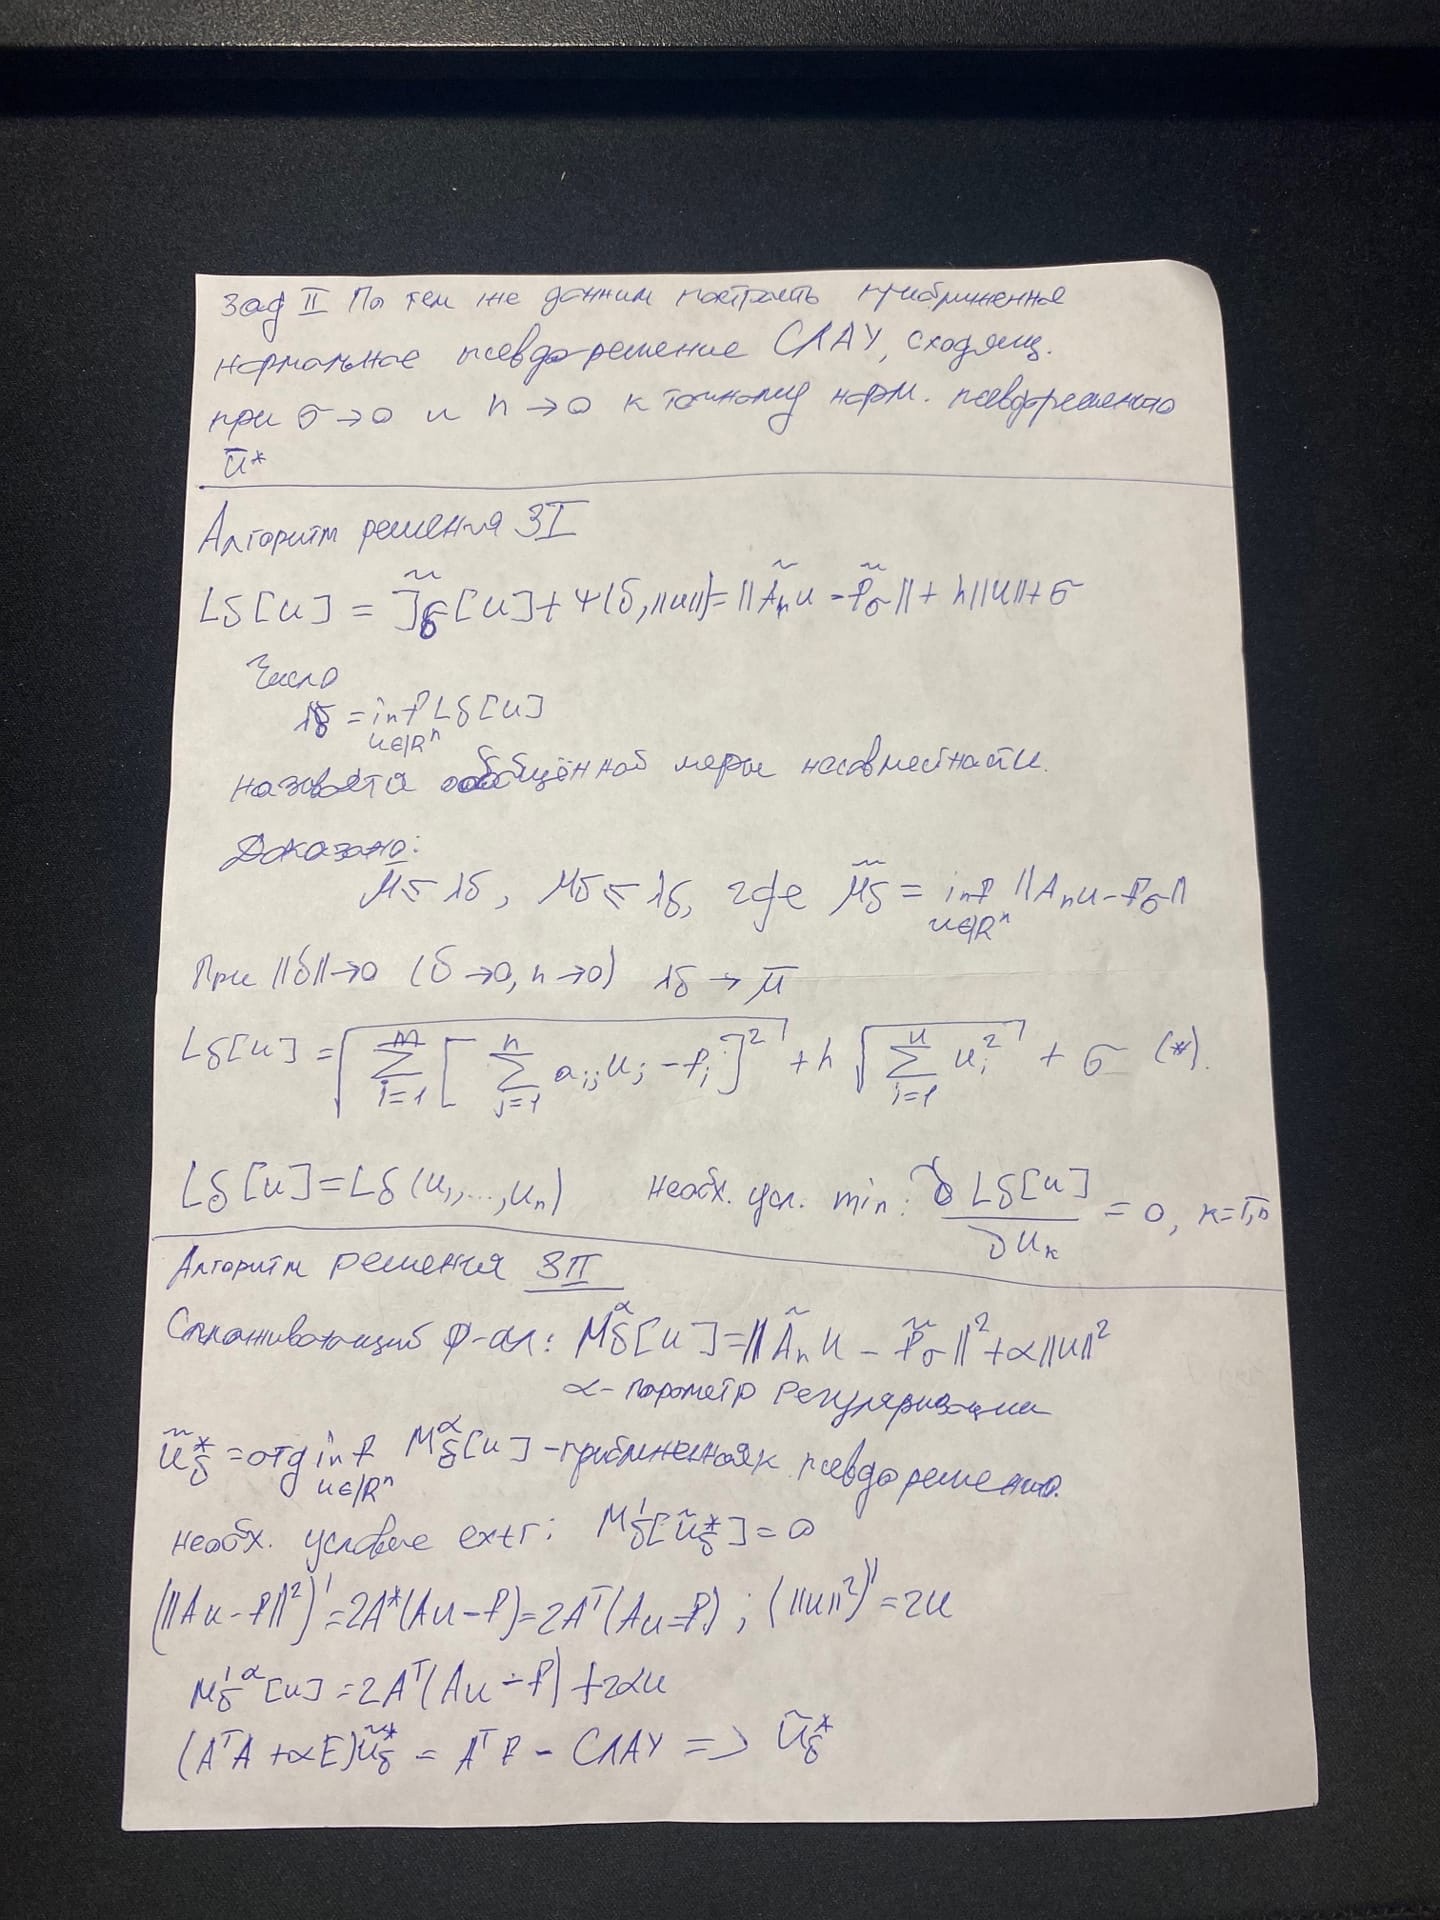 Зад II По тем же данным построить приближенное
нормальное псевдорешение СЛАУ, сходящ.
при σ→0 и h→0 к точному норм. псевдорешению
ū*
Алгоритм решения ЗI
Lδ[u] = J̃δ[u] + Ψ(δ,||u||) = ||Ãₕu - f̃σ|| + h||u|| + σ
Число
λδ = inf Lδ[u]
u∈ℝⁿ
называется обобщённой меры несовместности.
Доказано:
μ̄ ≤ λδ, μδ ≤ λδ, где μ̃δ = inf ||Aₕu - fσ||
u∈ℝⁿ
При ||δ||→0 (δ→0, h→0) λδ → μ̄
Lδ[u] = √(∑ᵢ₌₁ᵐ [∑ⱼ₌₁ⁿ aᵢⱼuⱼ - fᵢ]²) + h√(∑ᵢ₌₁ⁿ uᵢ²) + σ (*).
Lδ[u] = Lδ(u₁,...,uₙ) необх. усл. min: ∂Lδ[u]/∂uₖ = 0, к=1,n
Алгоритм решения ЗII
Сглаживающий ф-ал: Mδ^α[u] = ||Ãₕu - f̃σ||² + α||u||²
α - параметр регуляризации
ũδ* = arg inf Mδ^α[u] - приближенная к псевдорешению.
u∈ℝⁿ
необх. условие extr: M'δ[ũδ*] = 0
(||Au - f||²)' = 2A*(Au - f) = 2Aᵀ(Au - f); (||u||²)' = 2u
M'δ^α[u] = 2Aᵀ(Au - f) + 2αu
(AᵀA + αE)ũδ* = Aᵀf - СЛАУ => ũδ*